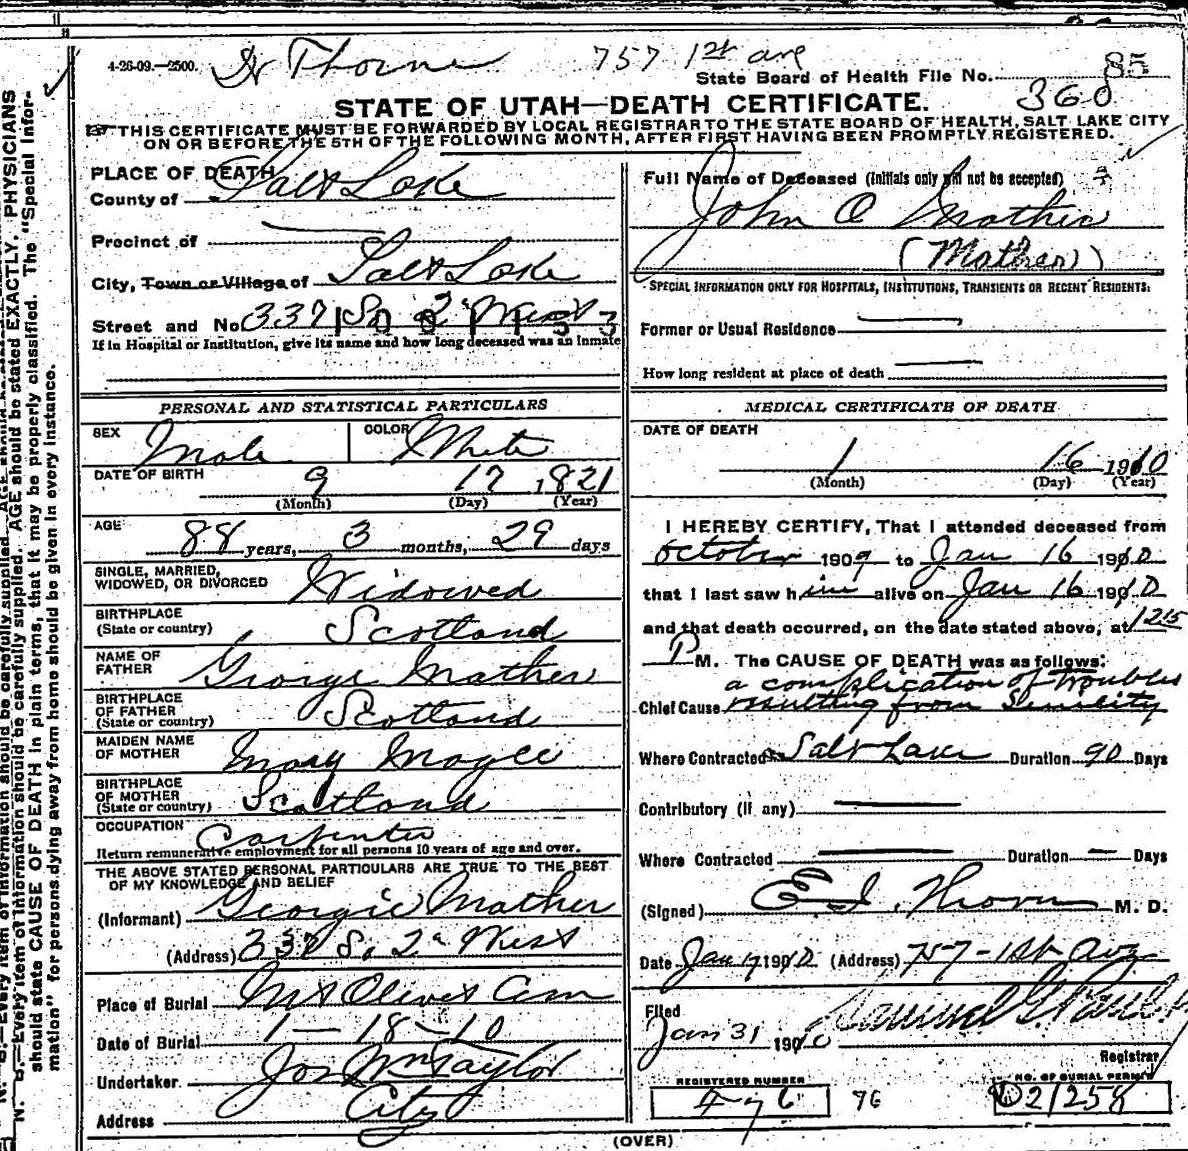 4-26-09.—2500.
Dr Thorne
757 1st ave
State Board of Health File No. 85
360
STATE OF UTAH—DEATH CERTIFICATE.
THIS CERTIFICATE MUST BE FORWARDED BY LOCAL REGISTRAR TO THE STATE BOARD OF HEALTH, SALT LAKE CITY
ON OR BEFORE THE 5TH OF THE FOLLOWING MONTH, AFTER FIRST HAVING BEEN PROMPTLY REGISTERED.
PLACE OF DEATH
County of Salt Lake
Precinct of
City, Town or Village of Salt Lake
Street and No 337 So 2d West
If in Hospital or Institution, give its name and how long deceased was an Inmate
Full Name of Deceased (Initials only will not be accepted)
John O Mather
(Mather)
SPECIAL INFORMATION ONLY FOR HOSPITALS, INSTITUTIONS, TRANSIENTS OR RECENT RESIDENTS:
Former or Usual Residence
How long resident at place of death
PERSONAL AND STATISTICAL PARTICULARS
SEX Male COLOR White
DATE OF BIRTH 9 17 1821
(Month) (Day) (Year)
AGE 88 years, 3 months, 29 days
SINGLE, MARRIED,
WIDOWED, OR DIVORCED Widowed
BIRTHPLACE
(State or country) Scotland
NAME OF
FATHER George Mather
BIRTHPLACE
OF FATHER
(State or country) Scotland
MAIDEN NAME
OF MOTHER Mary Magee
BIRTHPLACE
OF MOTHER
(State or country) Scotland
OCCUPATION Carpenter
Return remunerative employment for all persons 10 years of age and over.
THE ABOVE STATED PERSONAL PARTICULARS ARE TRUE TO THE BEST
OF MY KNOWLEDGE AND BELIEF
(Informant) Georgie Mather
(Address) 337 So 2d West
Place of Burial Mt Olivet Cem
Date of Burial 1—18—10
Undertaker Jos Wm Taylor
Address City
MEDICAL CERTIFICATE OF DEATH
DATE OF DEATH
1 16 1910
(Month) (Day) (Year)
I HEREBY CERTIFY, That I attended deceased from
October 1909 to Jan 16 1910
that I last saw him alive on Jan 16 1910
and that death occurred, on the date stated above, at 1215
P M. The CAUSE OF DEATH was as follows:
a complication of troubles
Chief Cause resulting from Senility
Where Contracted Salt Lake Duration 90 Days
Contributory (if any)
Where Contracted Duration — Days
(Signed) E. I. Thorne M. D.
Date Jan 17 1910 (Address) 757-1st Ave
Filed
Jan 31 1910 Samuel G. Paul
Registrar
REGISTERED NUMBER
76
NO. OF BURIAL PERMIT
21258
(OVER)
N. B.—Every item of information should be carefully supplied. AGE should be stated EXACTLY. PHYSICIANS
should state CAUSE OF DEATH in plain terms, that it may be properly classified. The "Special Infor-
mation" for persons dying away from home should be given in every instance.